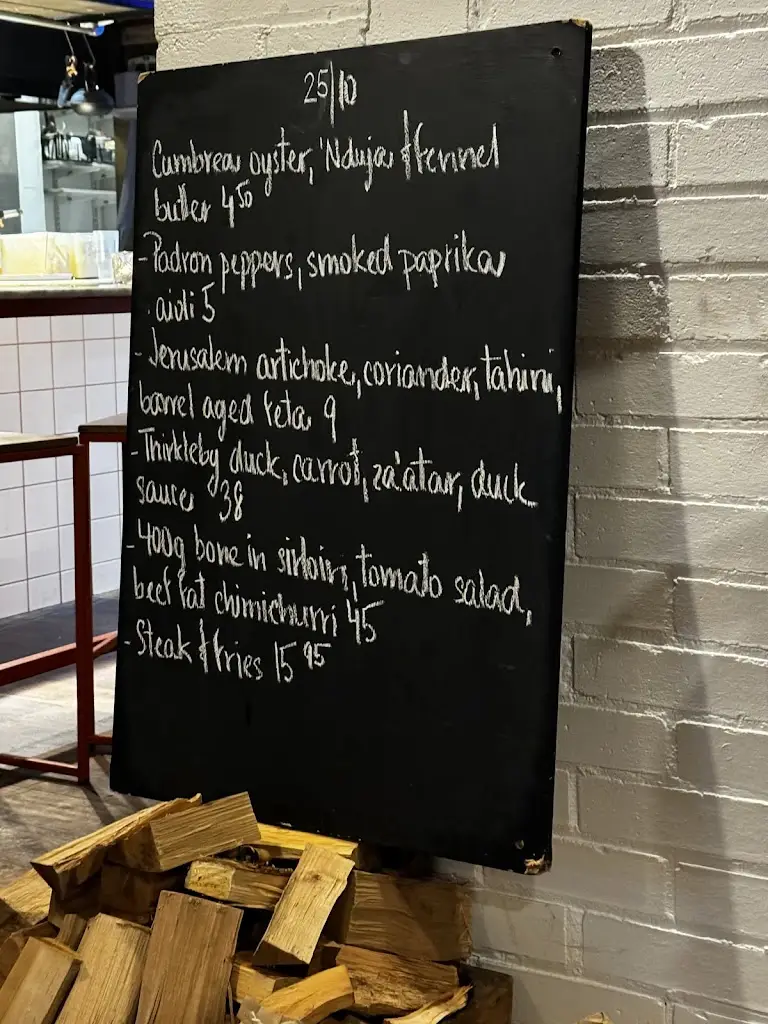 25/10
Cumbrea oyster, 'Nduja & fennel
butter 4⁵⁰
- Padron peppers, smoked paprika
aioli 5
- Jerusalem artichoke, coriander, tahini,
barrel aged feta 9
- Thirkleby duck, carrot, za'atar, duck
sauce 38
- 400g bone in sirloin, tomato salad,
beef fat chimichurri 45
- Steak & fries 15⁹⁵